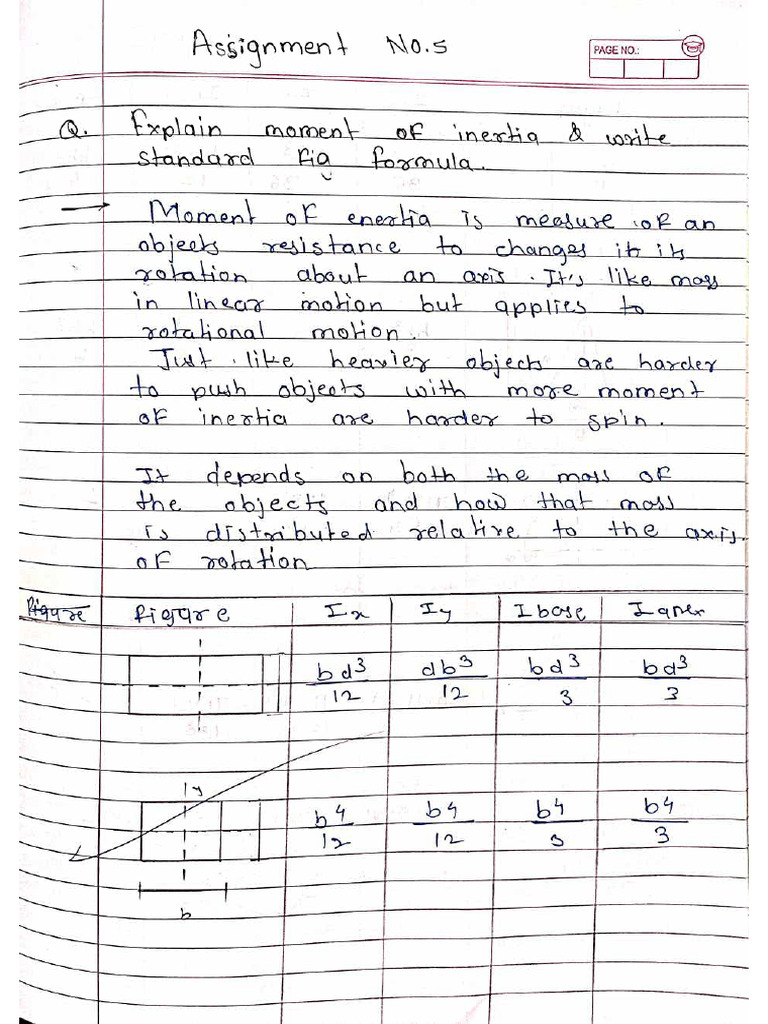 Assignment No.5
PAGE NO.:
Q. Explain moment of inertia & write
standard Fig formula.
→ Moment of enertia is measure of an
objects resistance to changes it its
rotation about an axis. It's like mass
in linear motion but applies to
rotational motion.
Just like heavier objects are harder
to push objects with more moment
of inertia are harder to spin.
It depends on both the mass of
the objects and how that mass
is distributed relative to the axis.
of rotation
Figure Figure Ix Iy I base I apex
bd³/12 db³/12 bd³/3 bd³/3
y
b4/12 b4/12 b4/3 b4/3
b